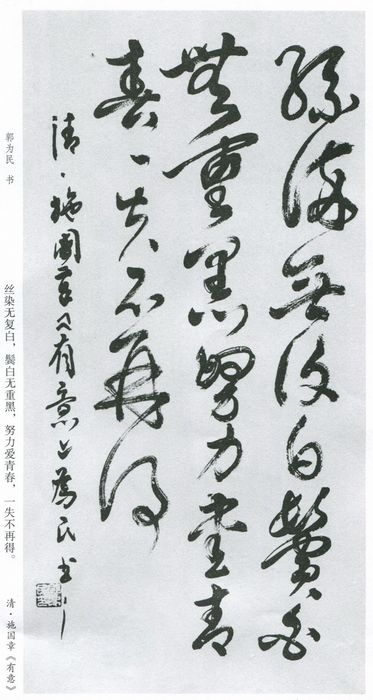 絲染無復白鬢白
無重黑努力愛青
春一失不再得
清·施國章有意為民書
郭为民 书
丝染无复白，鬓白无重黑，努力爱青春，一失不再得。
清·施国章《有意》